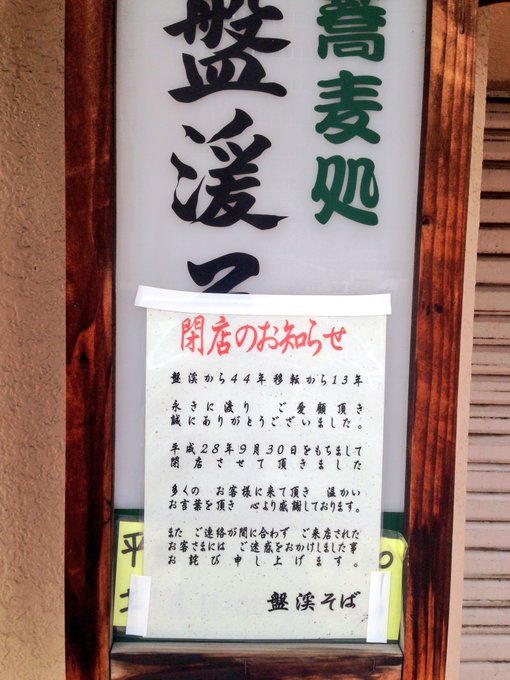 蕎麦処
盤渓そ
閉店のお知らせ
盤渓から44年移転から13年
永きに渡り　ご愛顧頂き
誠にありがとうございました。
平成28年9月30日をもちまして
閉店させて頂きました
多くの　お客様に来て頂き　温かい
お言葉を頂き　心より感謝しております。
また　ご連絡が間に合わず　ご来店された
お客さまには　ご迷惑をおかけしました事
お詫び申し上げます。
盤渓そば
平